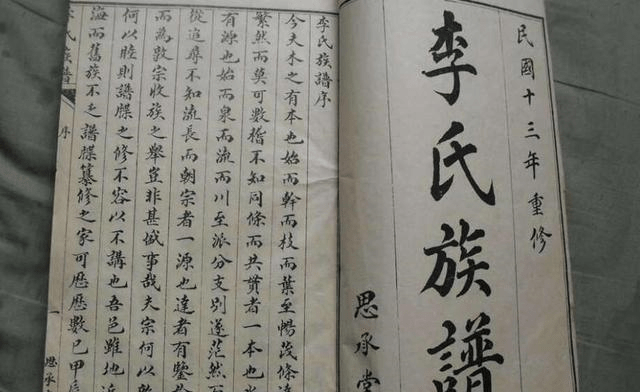 民國十三年重修
李氏族譜
思承堂
李氏族譜序
今夫木之有本也始而榦而枝而葉至暢茂條達
繁然而莫可數稽不知同條而共貫者一本也水
有源也始而泉而流而川至派分支别遂茫然
從追尋不知流長而朝宗者一源也達者有鑒於
而爲敦宗收族之舉豈非甚盛事哉夫宗何以敦
何以睦則譜牒之修不容以不講也吾邑雖地近
海而舊族不乏譜牒纂修之家可歷歷數已甲辰
李氏族譜
序
一
思承